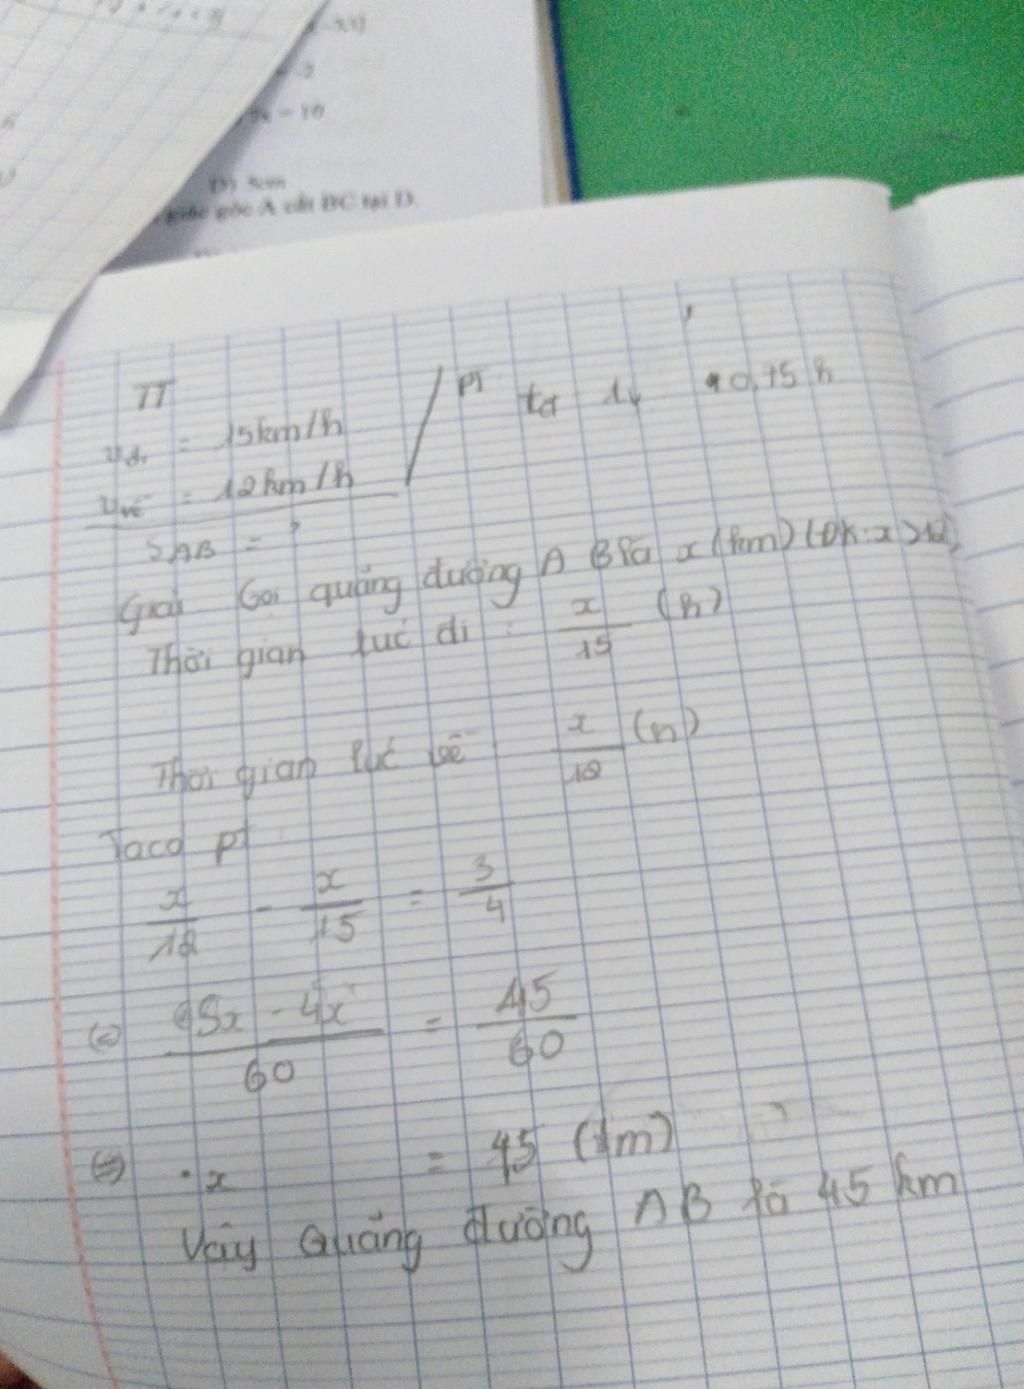 - 10
D) 5cm
giác góc A cắt BC tại D.
TT
vđi = 15km/h
PT
0,75 h
vvề = 12km/h
SAB = ?
Giải Gọi quảng đường A B là x (km) (ĐK: x >
Thời gian lúc đi : x/15 (h)
Thời gian lúc về x/12 (h)
Ta có pt
x/12 - x/15 = 3/4
(=) 5x - 4x/60 = 45/60
(=) x = 45 (km)
Vậy Quảng đường AB là 45 km